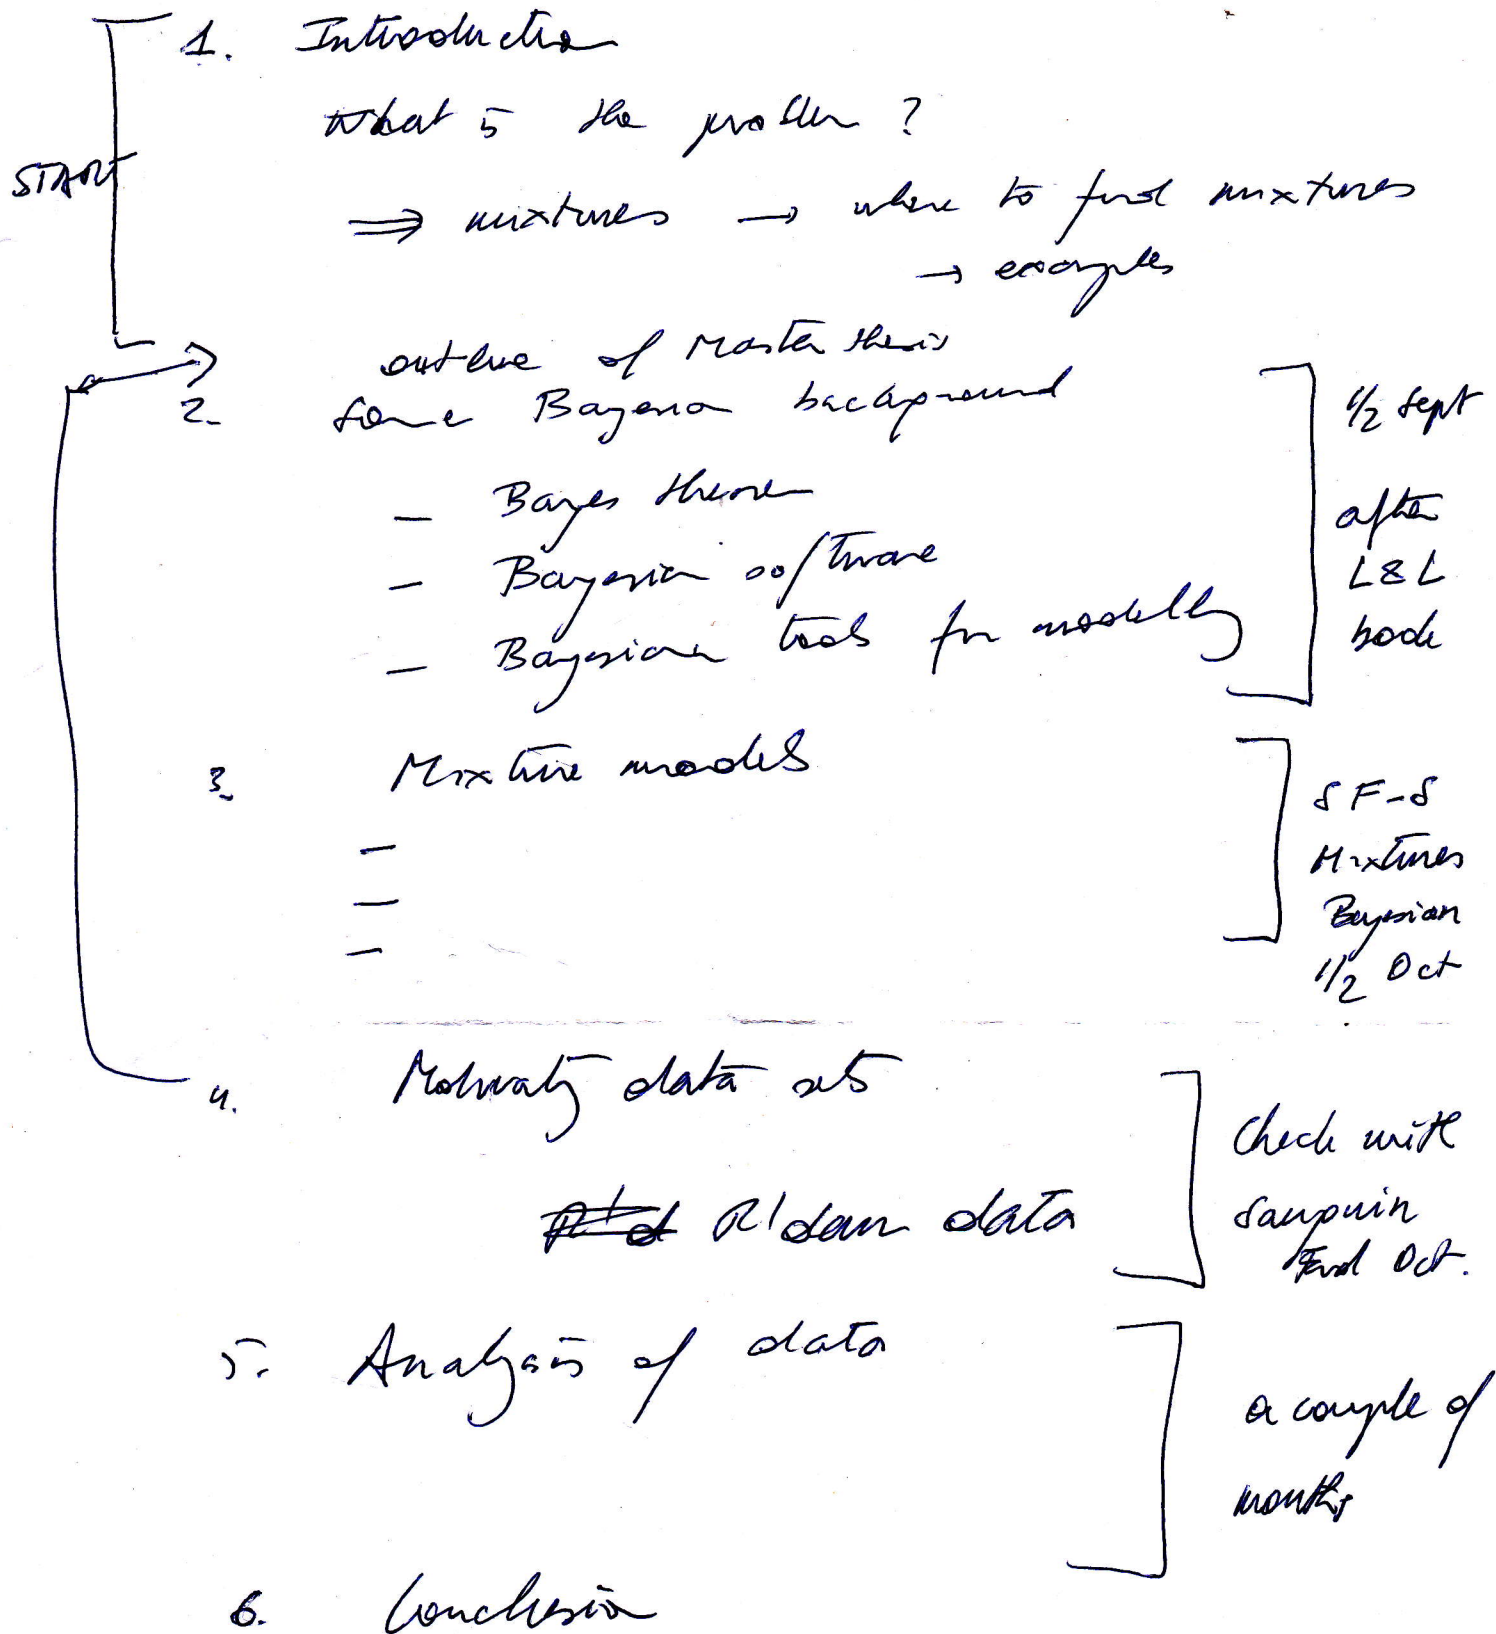 1. Introduction
What is the problem ?
START
⇒ mixtures → where to find mixtures
→ examples
outline of Master thesis
2. Some Bayesian background
1/2 Sept
– Bayes theorem
after
– Bayesian software
L&L
– Bayesian tools for modelling
book
3. Mixture models
SF-S
–
Mixtures
–
Bayesian
–
1/2 Oct
4. Motivating data sets
Check with
Sanquin
data
End Oct.
5. Analysis of data
a couple of
months
6. Conclusion